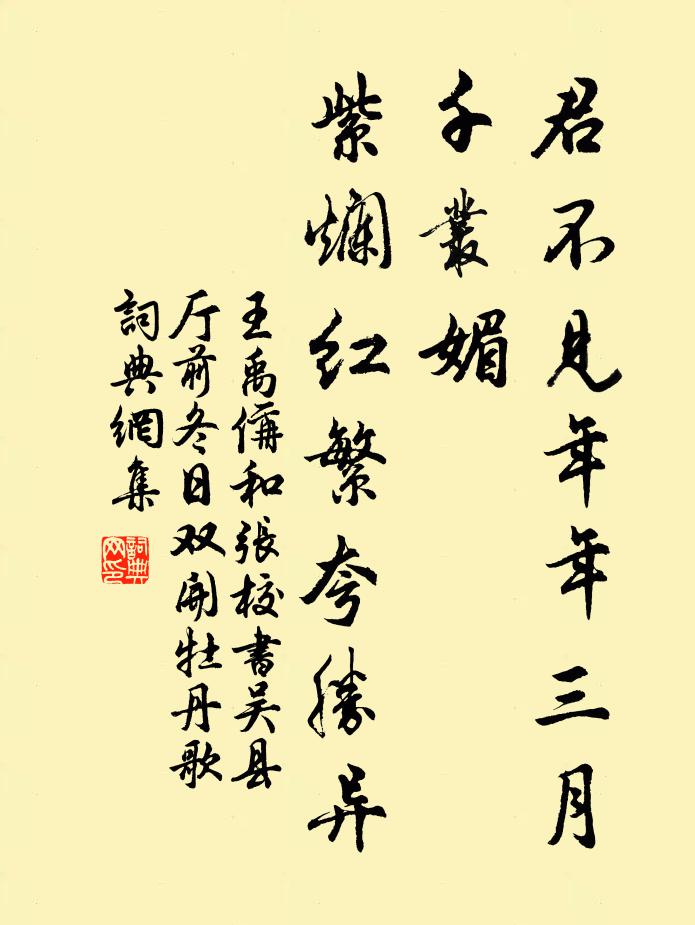 君不见年年三月
千叢媚
紫爛红繁夸勝异
王禹偁和張校書吴县
厅前冬日双開牡丹歌
詞典網集
詞典
网印